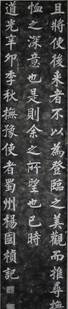 且將使後來者不以為登臨之美觀而推尋撫
恤之深意也是則余之所望也已時
道光辛卯季秋撫豫使者蜀州楊國楨記